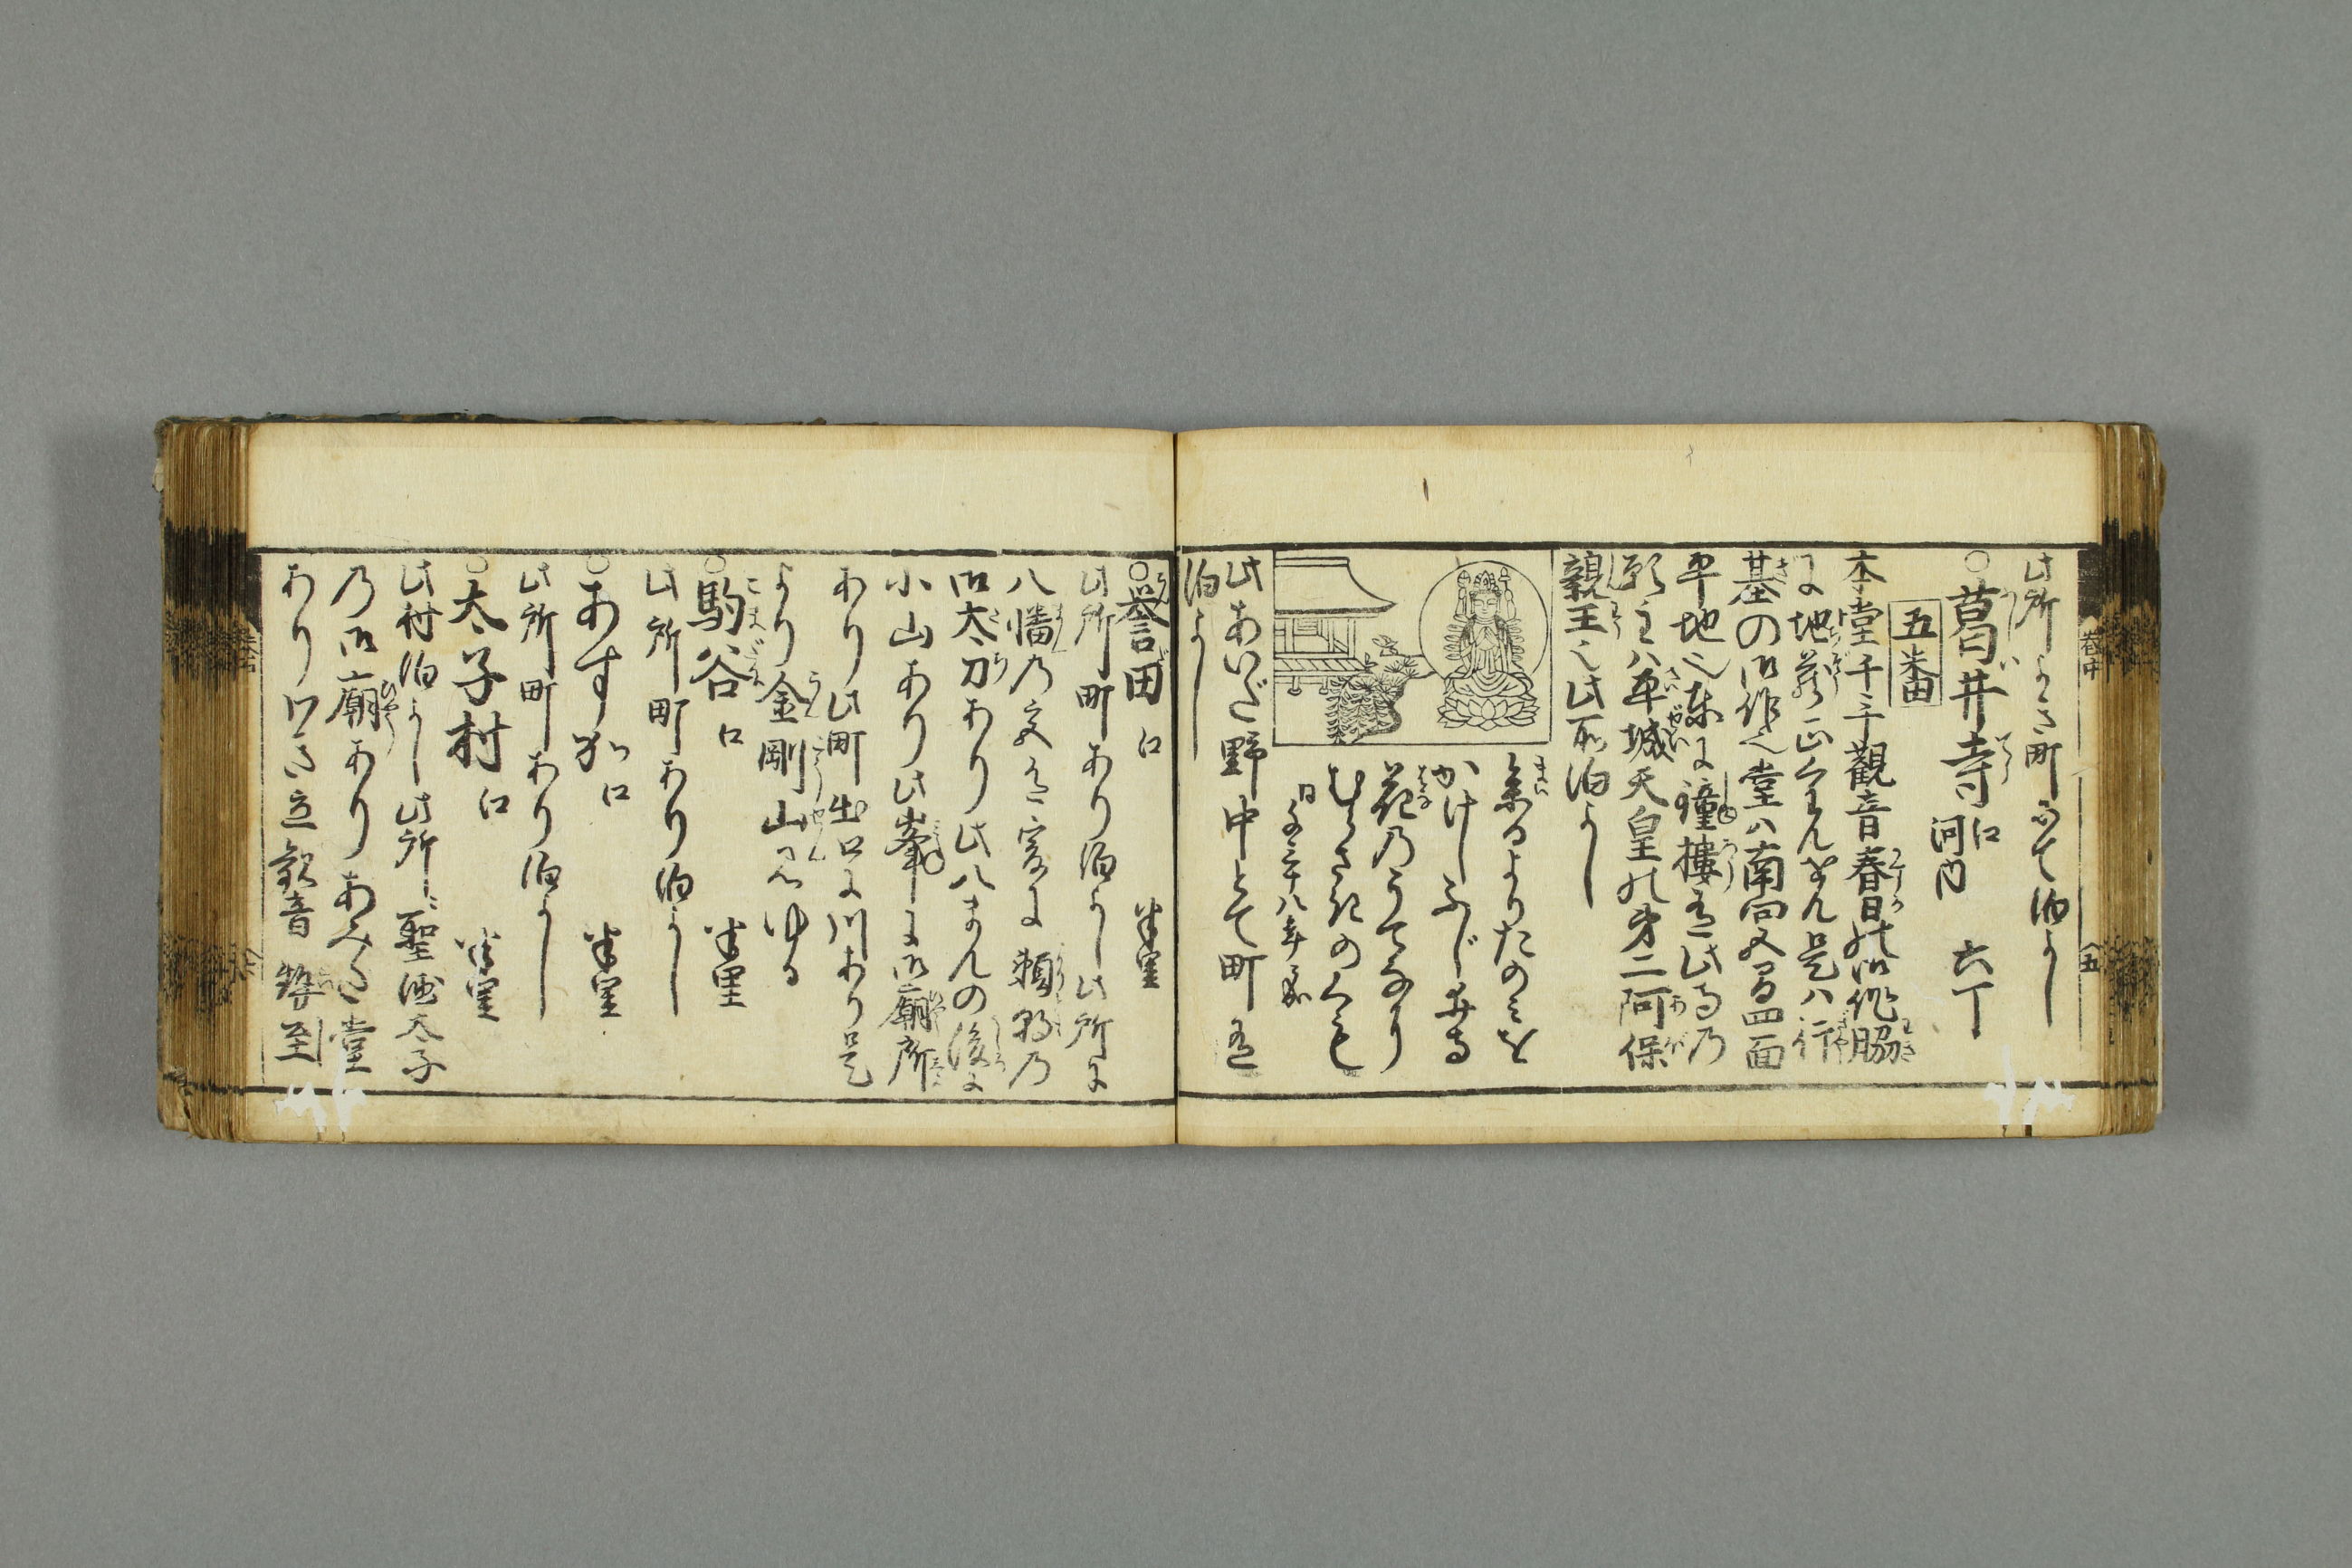 此所よき町にて泊よし
○葛井寺江 河内 六丁
五番
本堂千手觀音春日の御作脇
に地蔵正くわんをん是ハ行
基の御作也堂ハ南向又有四面
平地也東に鐘樓有此寺乃
願主ハ平城天皇の第二阿保
親王也此所泊よし
参るよりたのミを
かけしふぢ井寺
花乃うてなり
むらさきのくも
此あいだ野中とて町有
泊よし
○譽田江 半里
此所町あり泊よし此所に
八幡乃宮有宮に頼朝乃
御太刀あり此八まんの後に
小山あり此峯に御廟所
あり此町出口に川あり是
より金剛山みゆる
○駒谷江 半里
此所町あり泊よし
○あすか江 半里
此所町あり泊よし
○太子村江 半里
此村泊よし此所ニ聖徳太子
乃御廟ありあみだ堂
ありわき立観音勢至
巻中
五